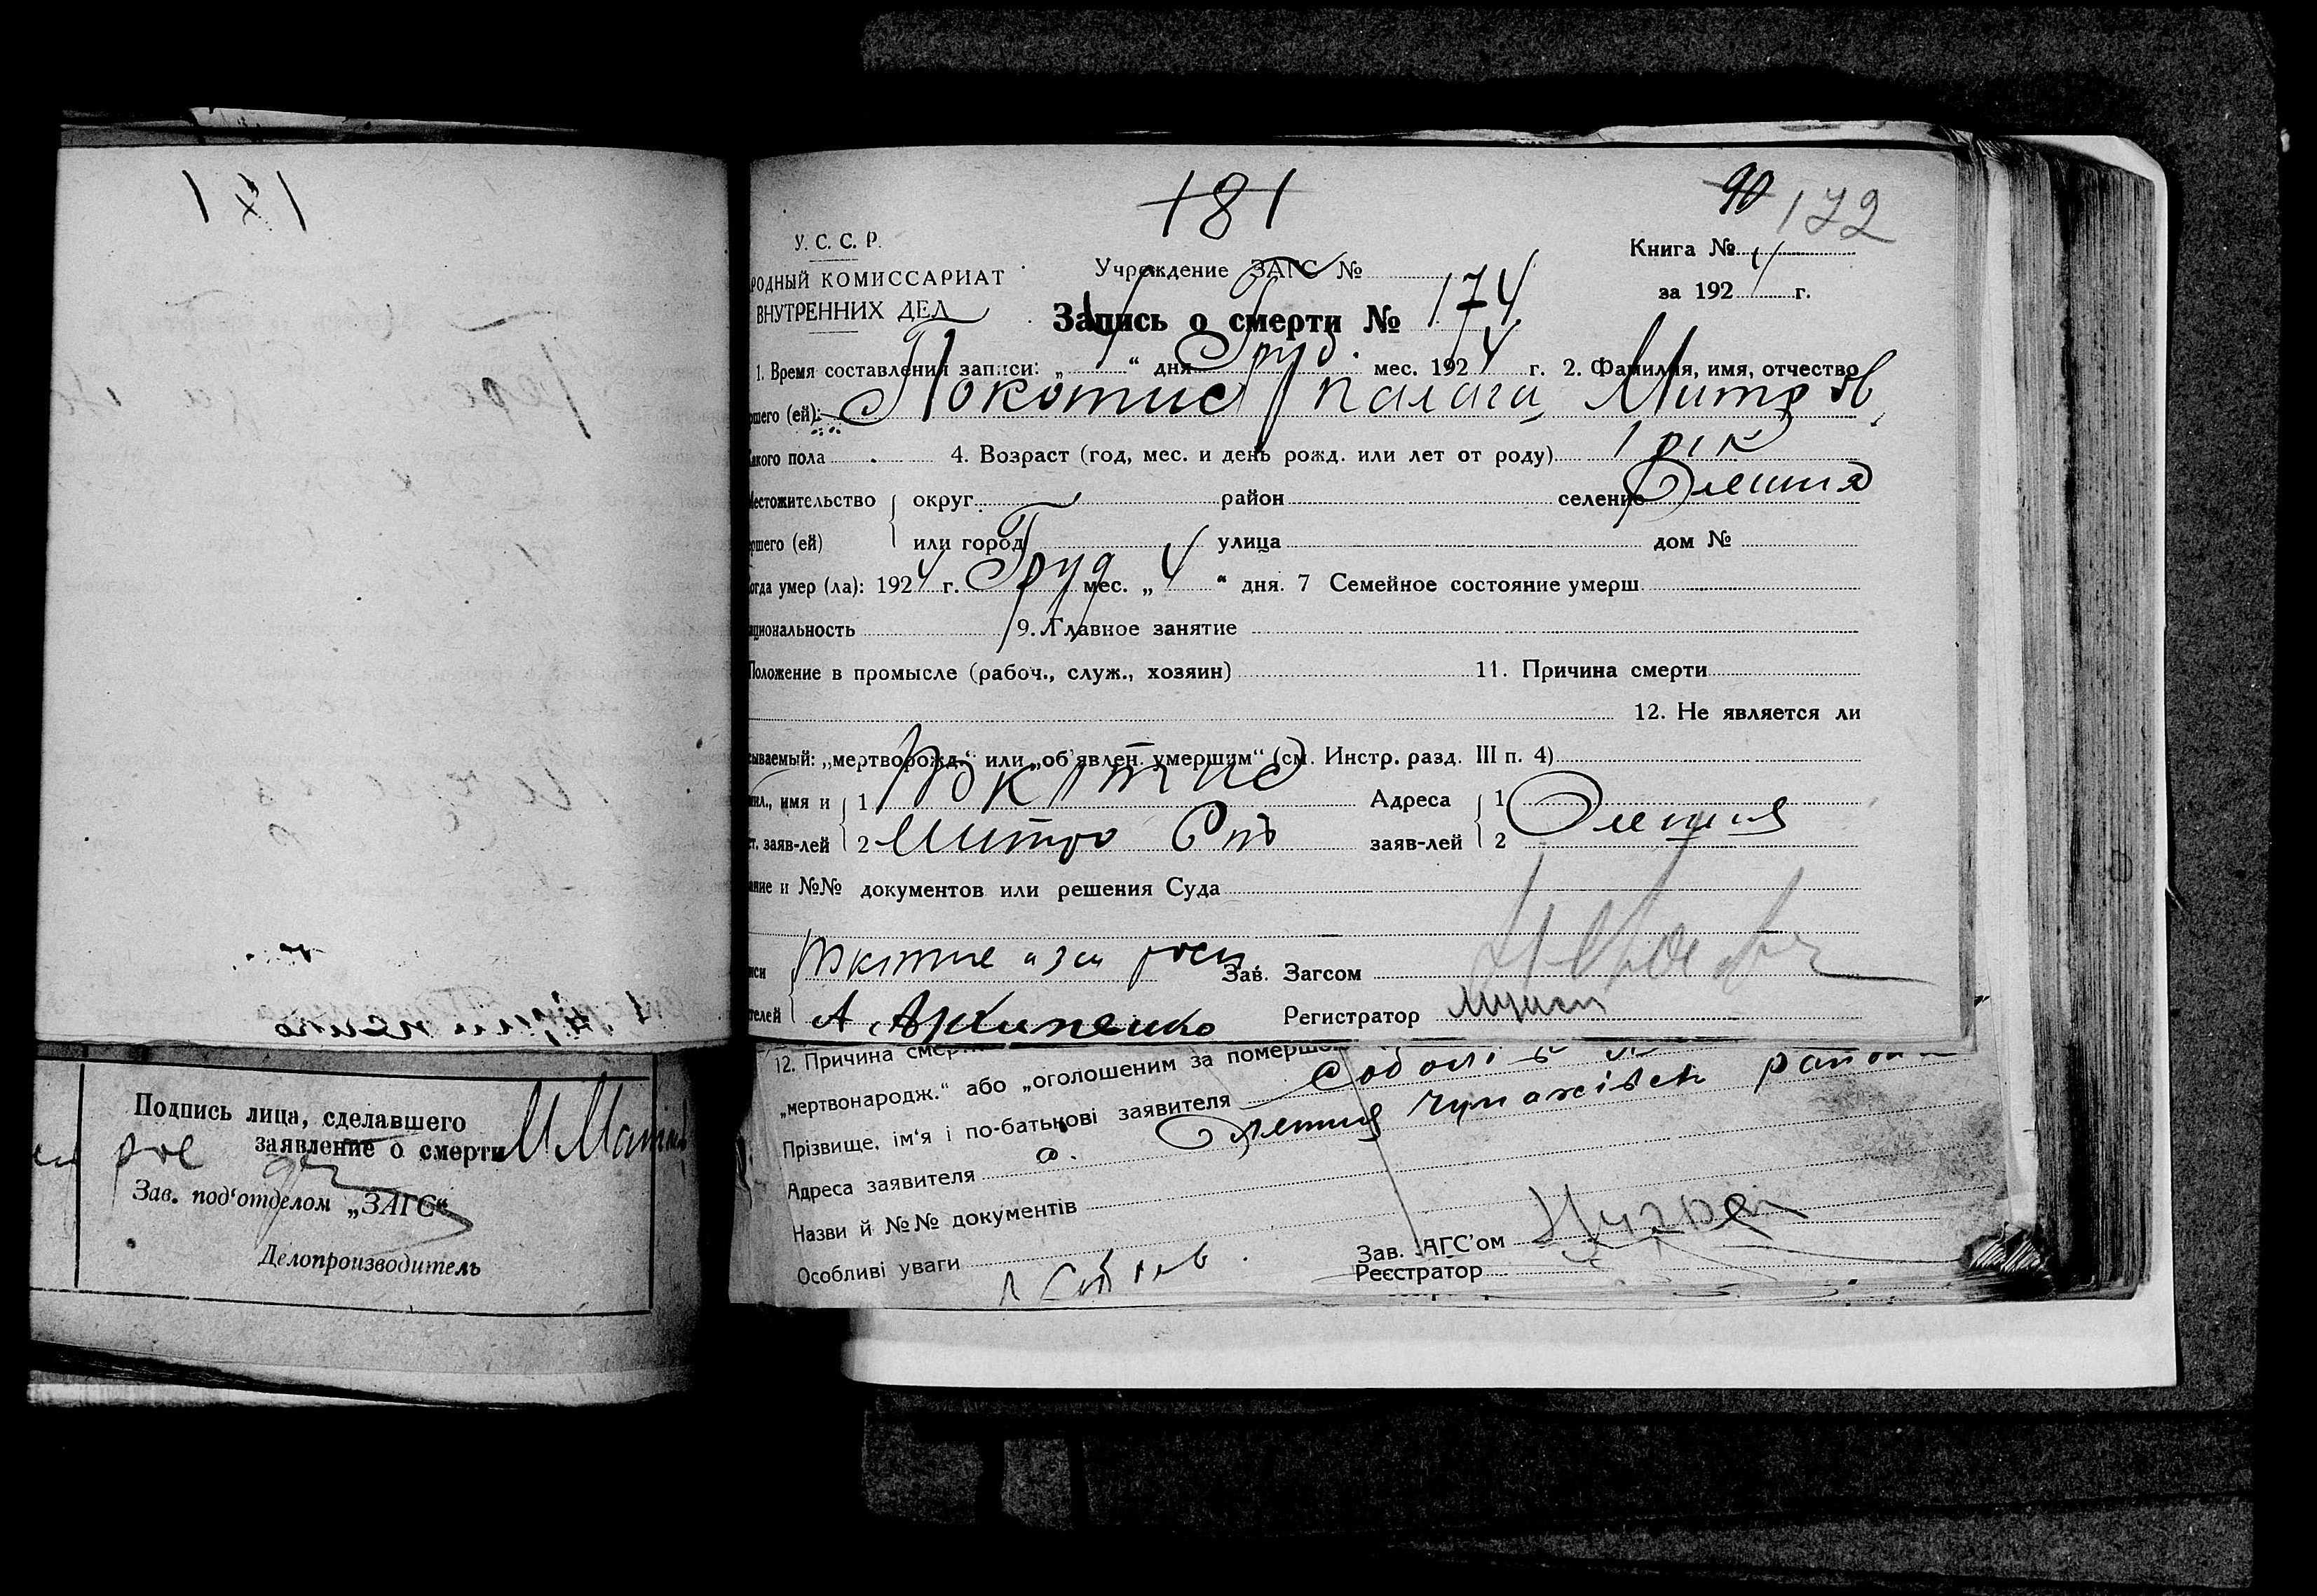 171
181
90 172
У. С. С. Р.
РОДНЫЙ КОМИССАРИАТ
ВНУТРЕННИХ ДЕЛ
Учреждение ЗАГС №
Книга № 4
за 192 г.
Запись о смерти № 174
1. Время составления записи: „ 4 “ дня Груд. мес. 1924 г. 2. Фамилия, имя, отчество
ршего (ей): Покотило Палага Митров
какого пола 4. Возраст (год, мес. и день рожд. или лет от роду) 1 рік
Местожительство округ район селение Олешня
ршего (ей) или город улица дом №
огда умер (ла): 1924 г. Груд мес. „ 4 “ дня. 7 Семейное состояние умерш.
ациональность 9. Главное занятие
Положение в промысле (рабоч., служ., хозяин) 11. Причина смерти
12. Не является ли
сываемый: „мертворожд.“ или „об‘явлен. умершим“ (см. Инстр. разд. III п. 4)
мил., имя и 1 Покотило Адреса 1 Олешня
ет. заяв-лей 2 Митро заяв-лей 2
ание и №№ документов или решения Суда
иси Зав. Загсом
телей А Архипенко Регистратор
12. Причина смерт
„мертвонародж.“ або „оголошеним за померш
Прізвище, ім‘я і по-батькові заявителя
Адреса заявителя с. Олешня Чупахівськ района
Назви й №№ документів
Особливі уваги
Зав. ЗАГС’ом
Реєстратор
Подпись лица, сделавшего
заявление о смерти
Зав. под‘отделом „ЗАГС“
Делопроизводитель